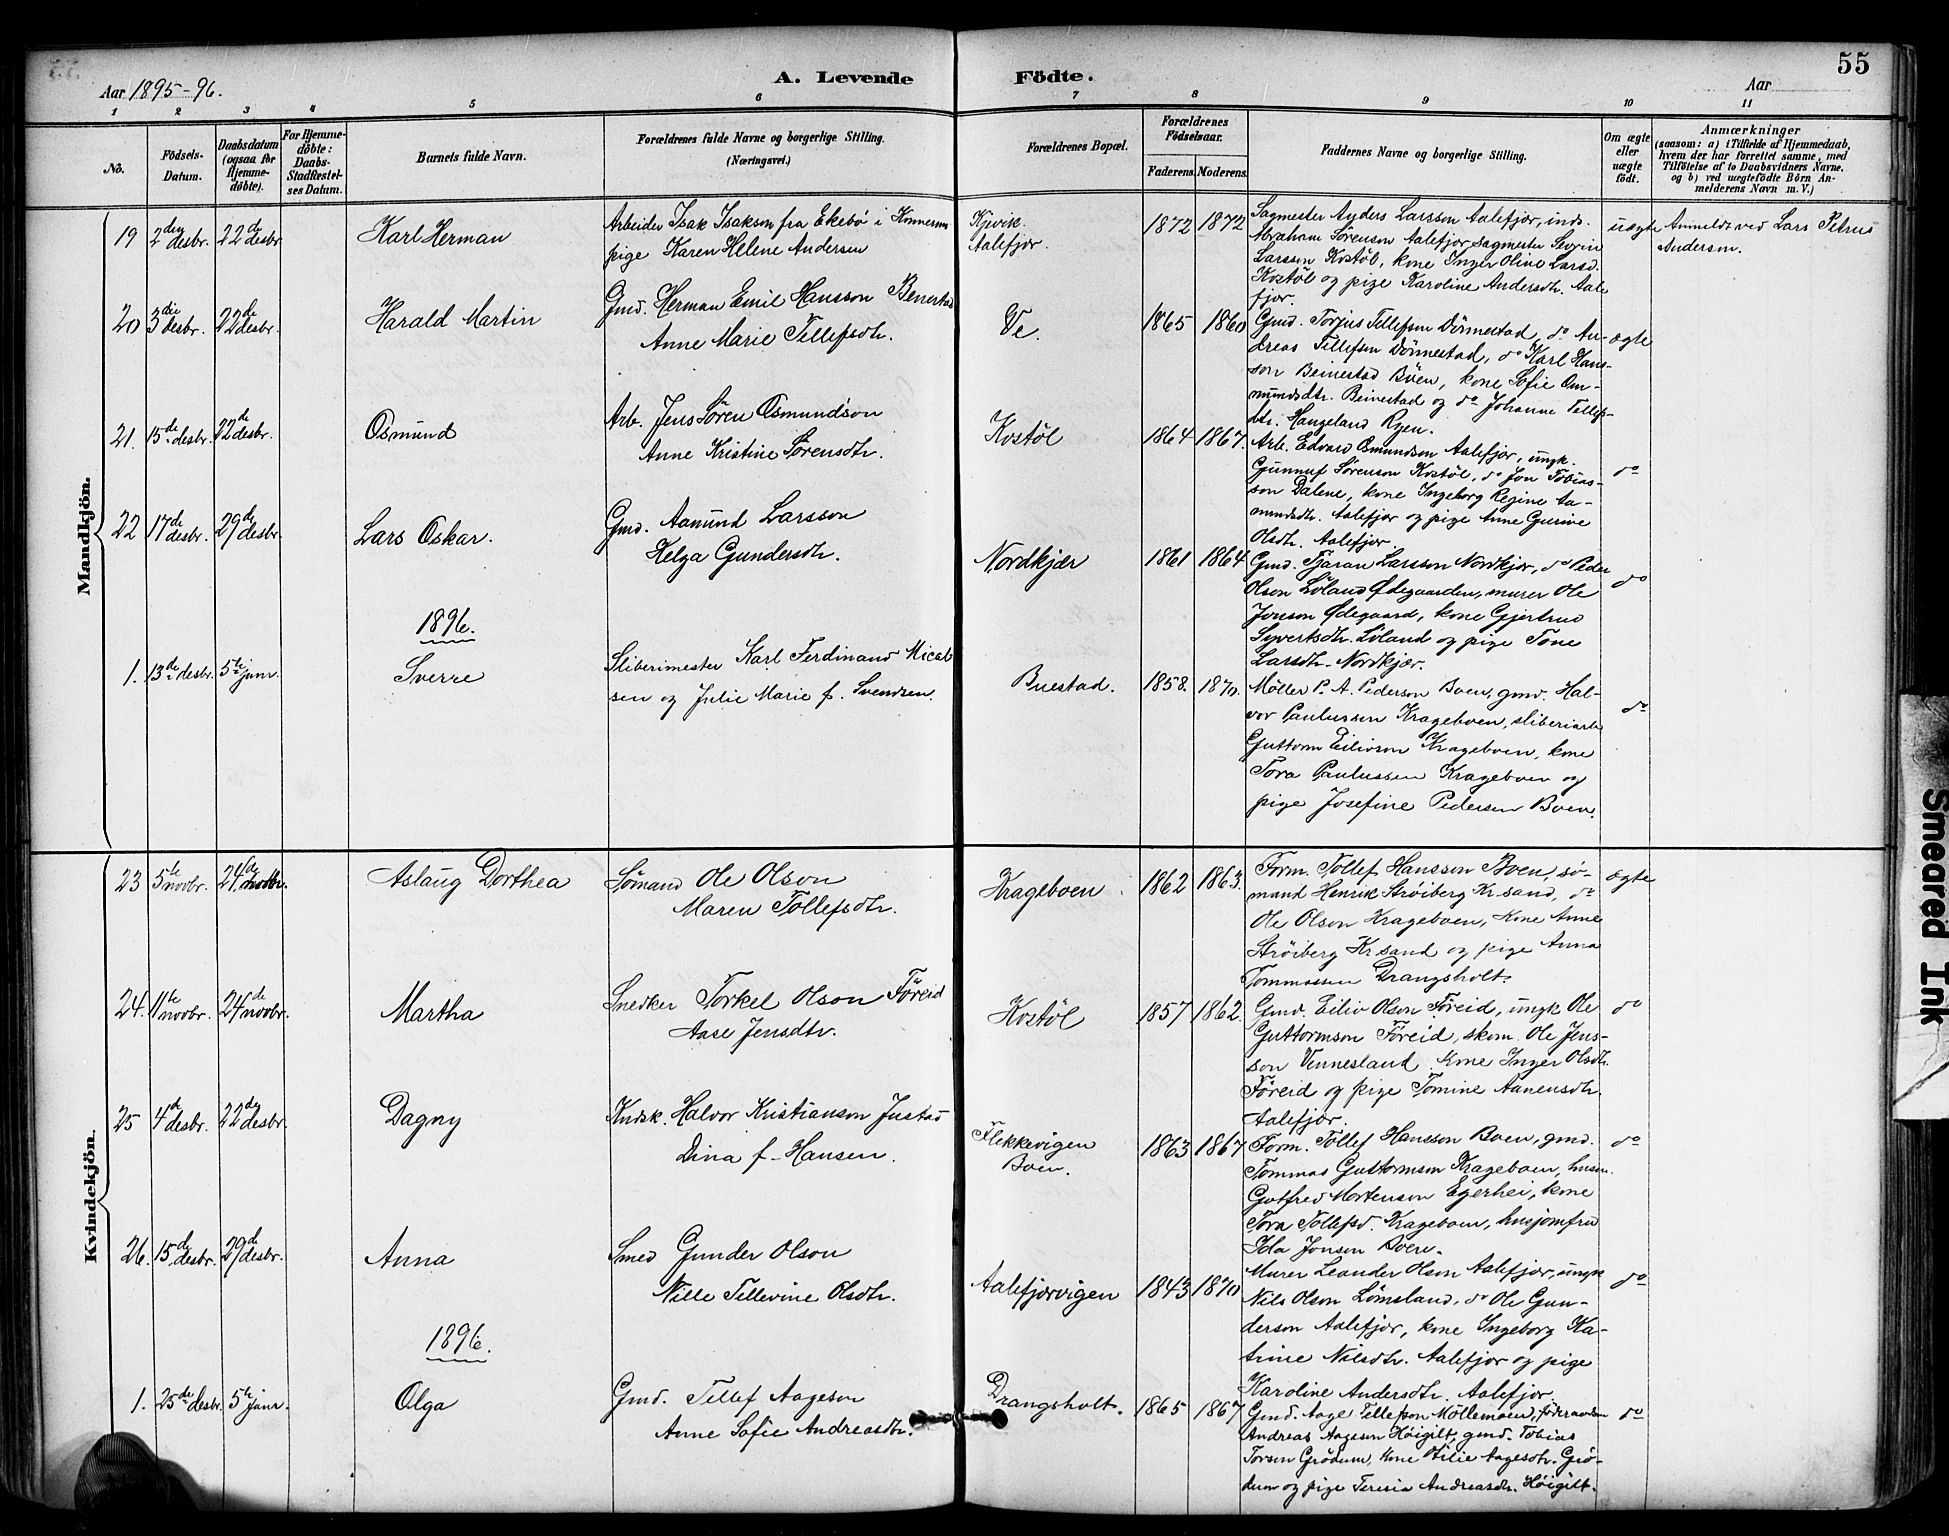 55
Aar 1895-96.
A. Levende
Födte.
Aar
1 2 3 4 5 6 7 8 9 10 11
No.
Födsels-
Datum.
Daabsdatum
(ogsaa för
Hjemme-
döbte).
For Hjemme-
döbte:
Daabs-
Stadfæstel-
ses Datum.
Barnets fulde Navn.
Forældrenes fulde Navne og borgerlige Stilling.
(Næringsvei.)
Forældrenes Bopæl.
Forældrenes
Födselsaar.
Faderens.
Moderens.
Faddernes Navne og borgerlige Stilling.
Om ægte
eller
uægte
födt.
Anmærkninger
(saasom: a) i Tilfælde af Hjemmedaab,
hvem der har forrettet samme, med
Tilföielse af to Daabsvidners Navne.
og b) ved uægtefödte Börn An-
melderens Navn m. V.)
Mandkjön.
19 2den desbr. 22de desbr. Karl Herman
Arbeider Isak Isakson fra Ekebø i
pige Karen Helene Andersen
Kjevik.
Aalefjær.
1872 1872
Sagmester Anders Larsson Aalefjær, inds.
Abraham Sørenson Aalefjær, sagmester
Larssen Kostøl, kone Inger Oline Larsd.
Kostøl og pige Karoline Andersdtr. Aale
fjær.
uægte
Anmeldt ved Lars Petrus
Anderson.
20 3die desbr. 22de desbr. Harald Martin
Gmd. Herman Emil Hansson
Anne Marie Tellefsdtr.
Ve.
1865 1860
Gmd. Torjus Tellefsen Dönnestad, do An-
dreas Tellefsen Dönnestad, do Karl Hans-
son Beinestad Böen, kone Sofie Om-
mundsdtr. Beinestad og do Johanne Tellefs-
dtr. Hangeland Ryen.
ægte
21. 15de desbr. 22de desbr. Osmund
Arb. Jens Sören Osmundson
Anne Kristine Sørensdtr.
Kostöl
1864 1867.
Arb. Edvard Osmundson Aalefjær, ungk.
Gunnuf Sørenson Kostöl, do Jon Tobias-
son Dalene, kone Ingeborg Regine Aa-
mundsdtr. Aalefjær og pige Anne Gurine
Olsdtr. Aalefjær.
do
22 17de desbr. 29de desbr. Lars Oskar.
Gmd. Aanund Larsson
Helga Gundersdtr.
Nordkjær
1861 1864
Gmd. Tjäran Larsson Nordkjær, do Peder
Olson Löland Ødegaarden, murer Ole
Jonson Ødegaard, kone Gjertrud
Syvertsdtr. Löland og pige Tone
Larsdtr. Nordkjær.
do
1896.
1. 13de desbr. 5te janr. Sverre
Sliberimester Karl Ferdinand Mical
sen og Julie Marie f. Svendsen.
Buestad.
1858. 1870.
Møller P. A. Pederson Boen, gmd. Hal-
vor Paulussen Krageboen, sliberiarb.
Guttorm Eilivson Krageboen, kone
Tora Paulussen Krageboen og
pige Josefine Pedersen Boen.
do
Kvindekjön.
23 5te novbr. 24de novbr. Aslaug Dorthea
Sømand Ole Olson
Maren Tollefsdtr.
Krageboen.
1862 1863.
Form. Tollef Hansson Boen, sø-
mand Henrik Strøiberg Kr.sand, do
Ole Olson Krageboen, kone Anne
Strøiberg Kr.sand og pige Anna
Tommassen Drangsholt.
ægte
24. 11te novbr. 24de novbr. Martha
Snedker Torkel Olson Föreid
Aase Jensdtr.
Kostöl
1857 1862.
Gmd. Eiliv Olson Föreid, ungk Ole
Guttormson Föreid, skom. Ole Jens-
son Vennesland, kone Inger Olsdtr.
Föreid og pige Tomine Aanensdtr.
Aalefjær.
do
25 4de desbr. 22de desbr. Dagny
Kudsk. Halvor Kristianson Justad
Dina f. Hansen.
Flekkevigen
Boen.
1863 1867
Form. Tollef Hansson Boen, gmd.
Tommas Guttormsen Krageboen, husm.
Gotfred Mortenson Egerhei, kone
Tora Tollefsd. Krageboen, husjomfru
Ida Jonsen Boen.
do
26. 15de desbr. 29de desbr. Anna
Smed Gunder Olson
Nille Tellevine Olsdtr.
Aalefjærvigen
1843 1870
Murer Leander Olson Aalefjær, ungk
Nils Olson Lømsland, do Ole Gun-
derson Aalefjær, kone Ingeborg Ka-
trine Nilsdtr. Aalefjær og pige
Karoline Andersdtr. Aalefjær.
do
1896.
1. 25de desbr. 5te janr. Olga
Gmd. Tellef Aageson
Anne Sofie Andreasdtr.
Drangsholt.
1865 1867
Gmd. Aage Tellefson Möllemoen, föderaadm.
Andreas Aagesen Höigilt, gmd. Tobias
Torsen Grödum, kone Otilie Aagesdtr. Grö-
dum og pige Teresia Andreasdtr. Höigilt.
do
Smeared Ink